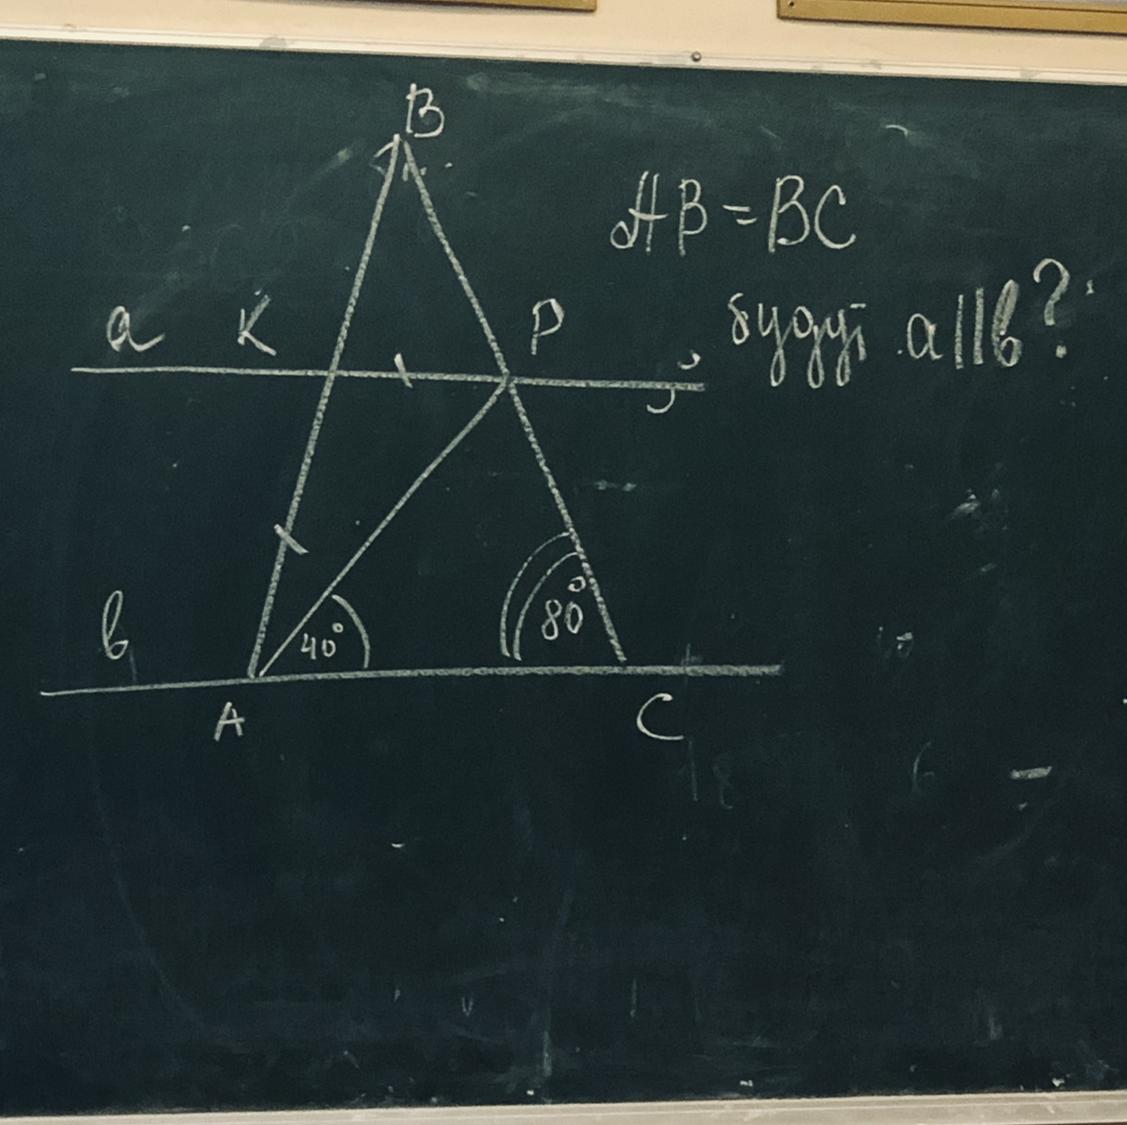 B
AB = BC
a K P
будуť a||b?
b 40° 80°
A C